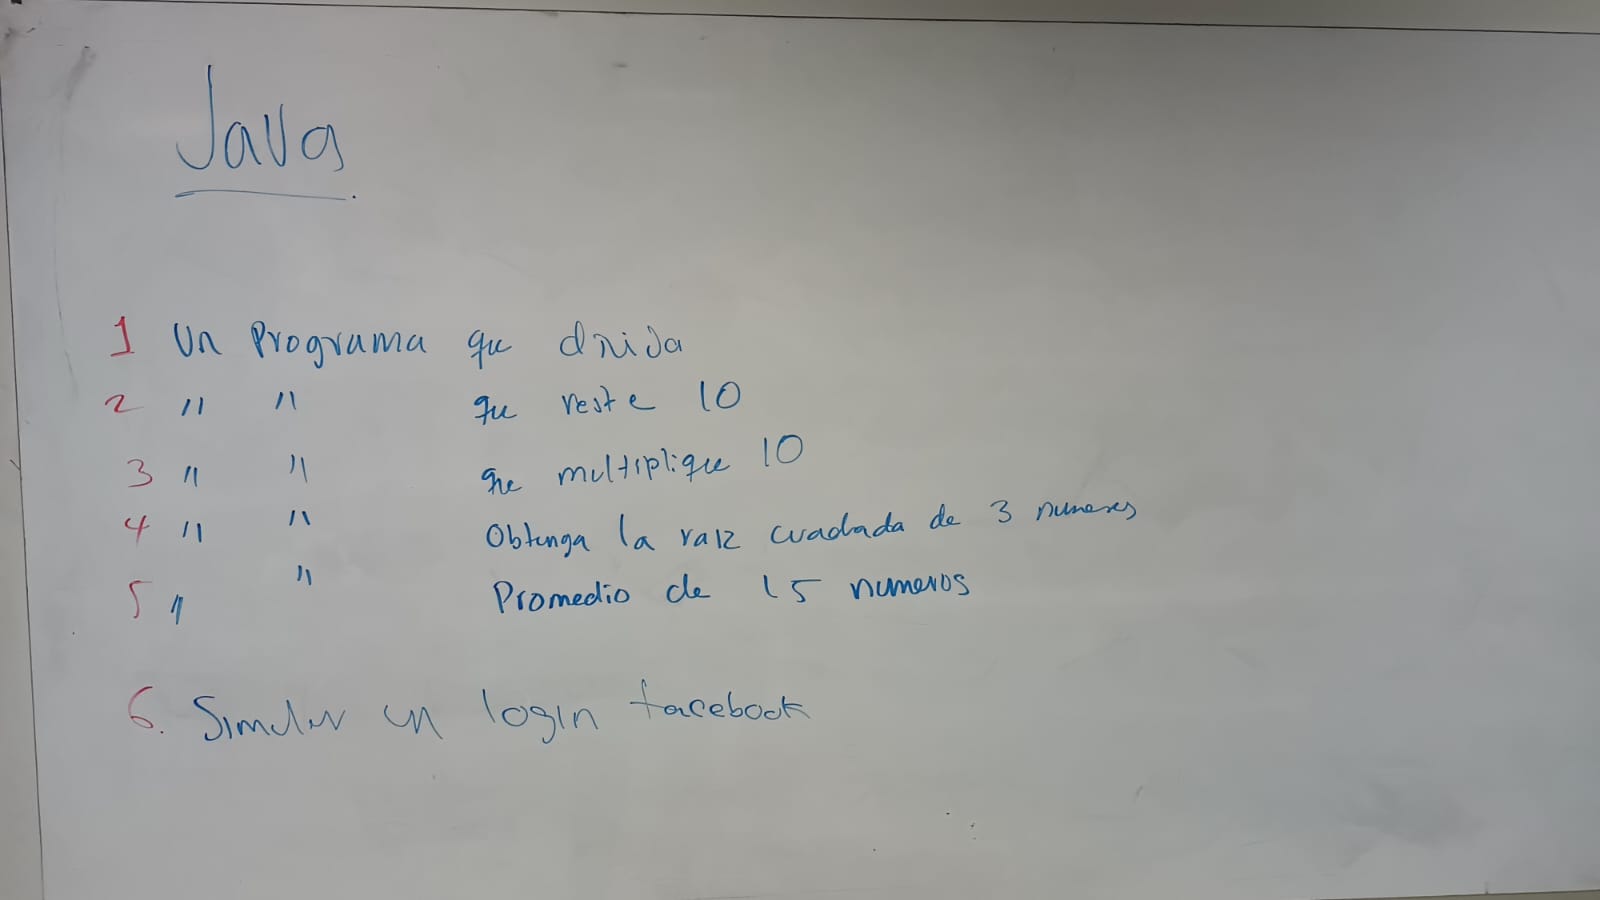 Java
1 Un Programa que divida
2 " " que reste 10
3 " " que multiplique 10
4 " " Obtenga la raiz cuadrada de 3 numeros
5 " " Promedio de 15 numeros
6. Simular un login facebook